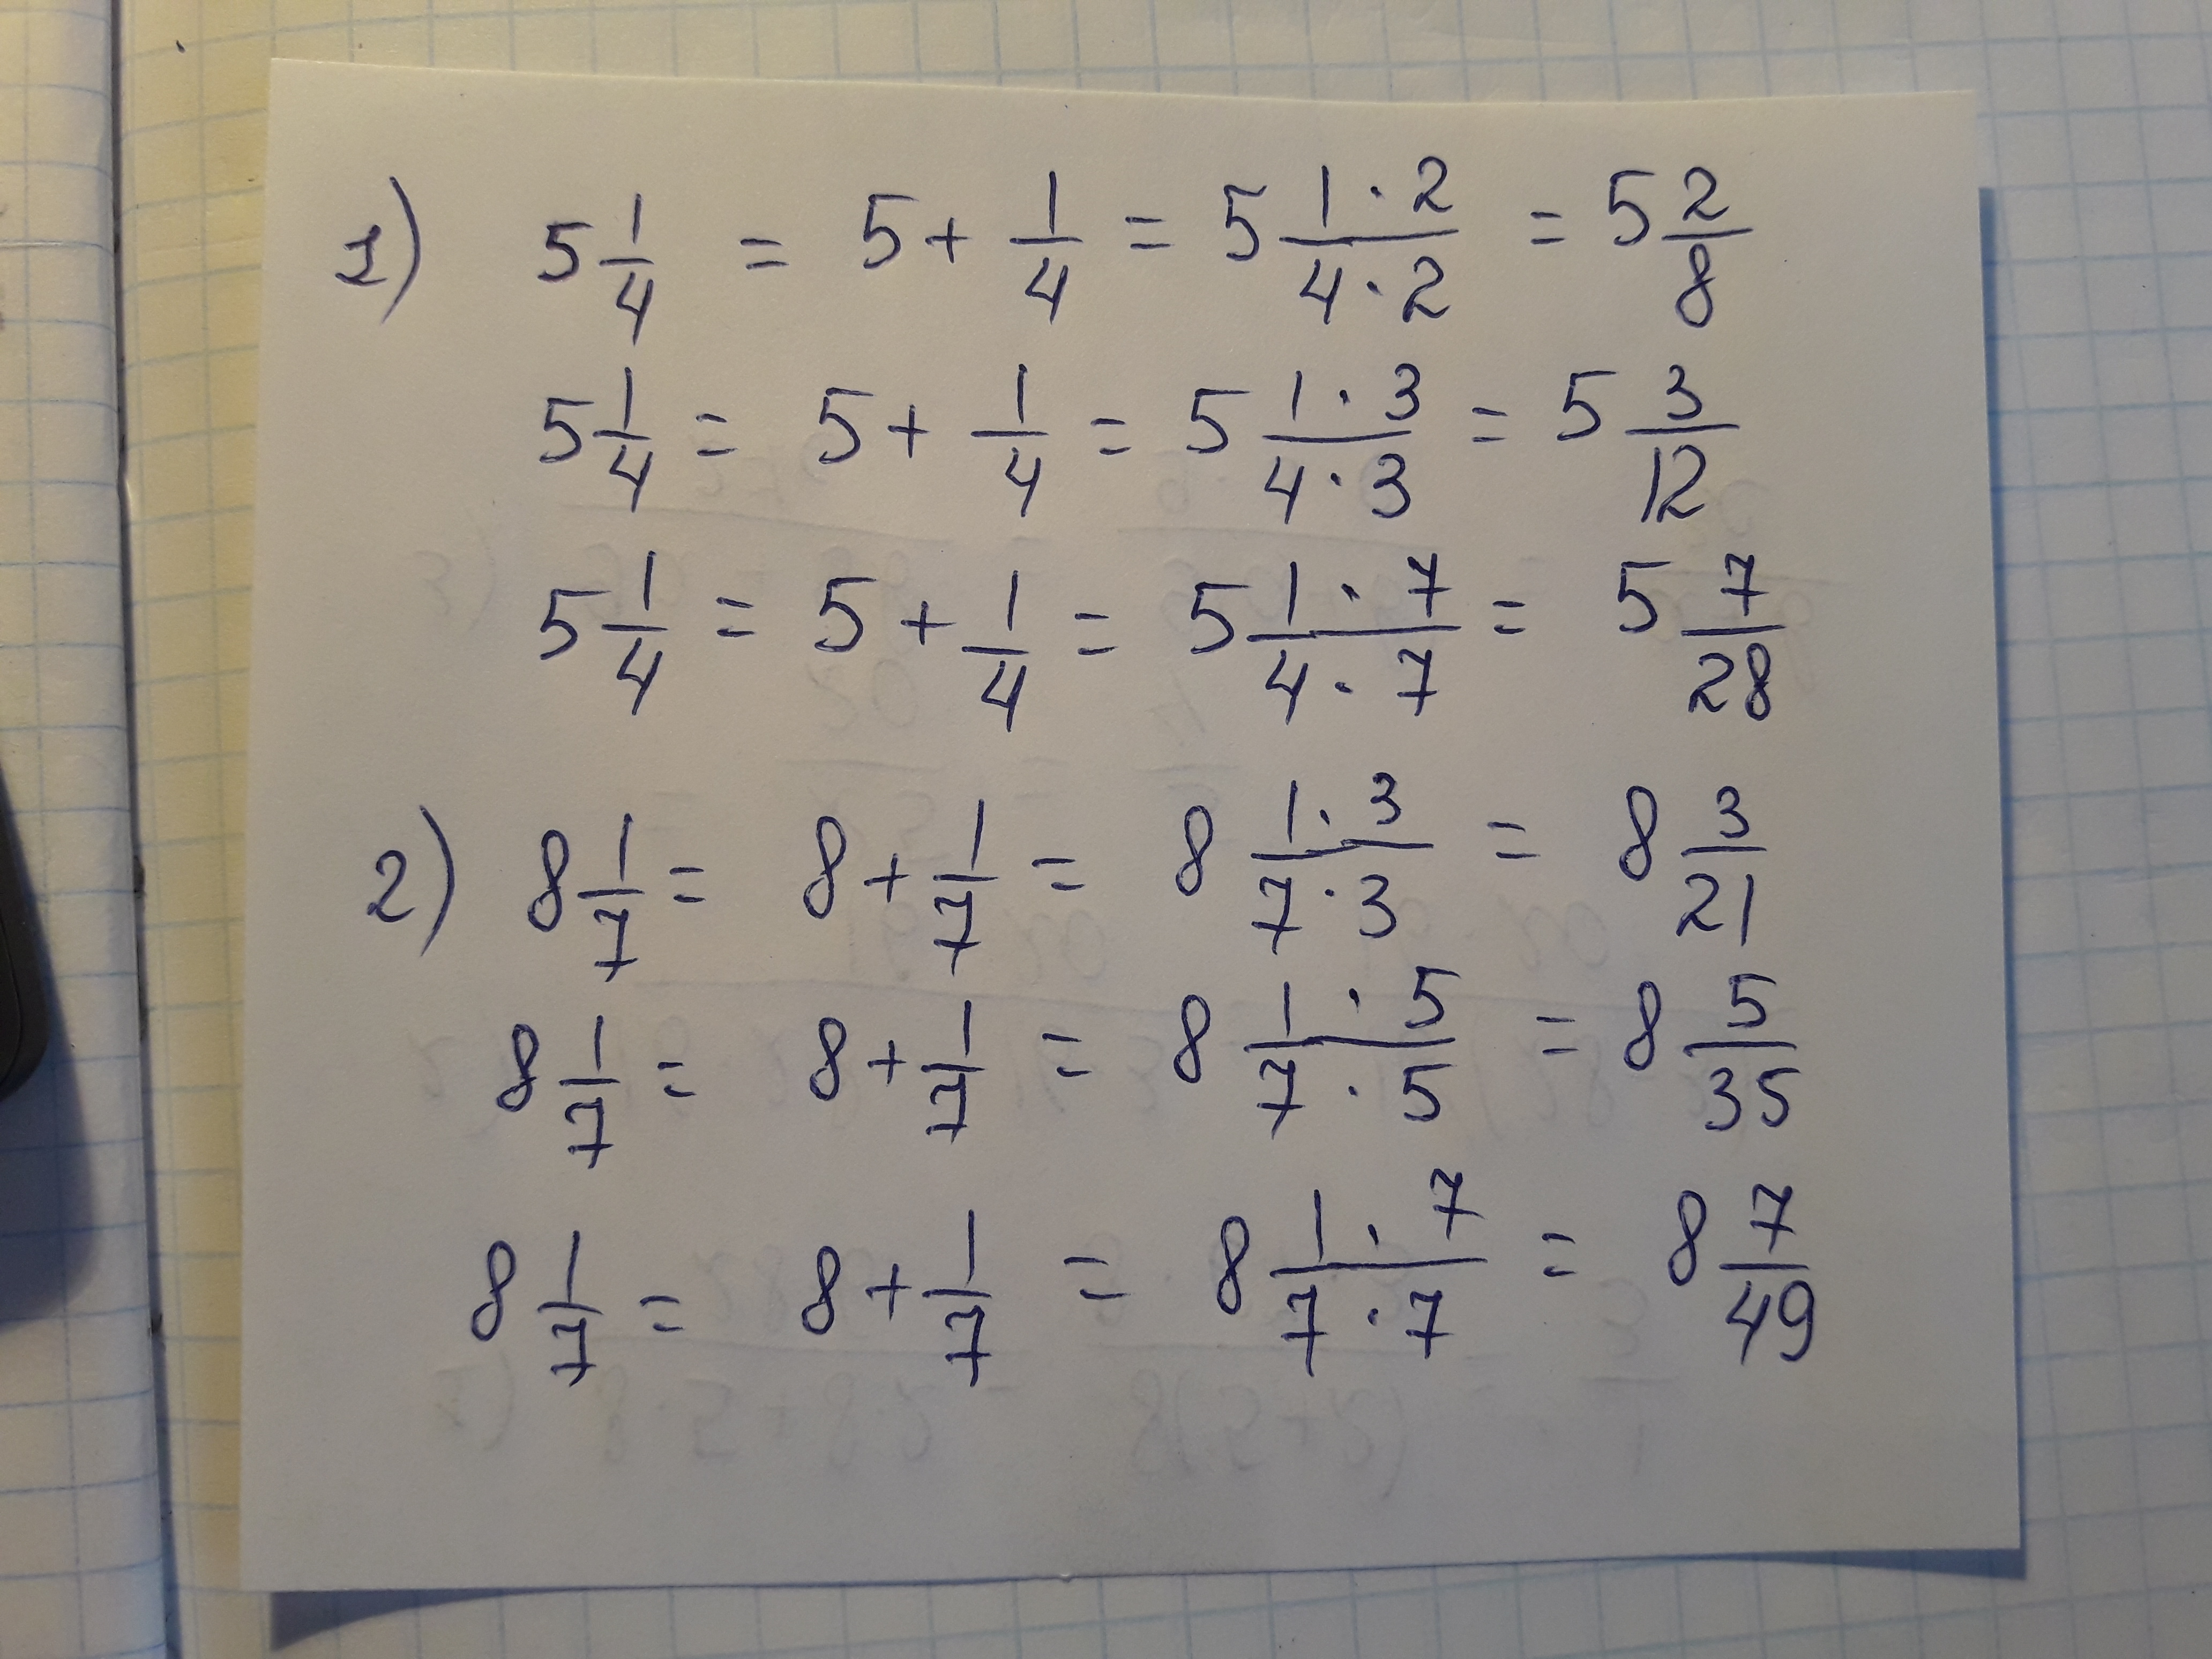 1) 5 1/4 = 5 + 1/4 = 5 1·2/4·2 = 5 2/8
5 1/4 = 5 + 1/4 = 5 1·3/4·3 = 5 3/12
5 1/4 = 5 + 1/4 = 5 1·7/4·7 = 5 7/28
2) 8 1/7 = 8 + 1/7 = 8 1·3/7·3 = 8 3/21
8 1/7 = 8 + 1/7 = 8 1·5/7·5 = 8 5/35
8 1/7 = 8 + 1/7 = 8 1·7/7·7 = 8 7/49